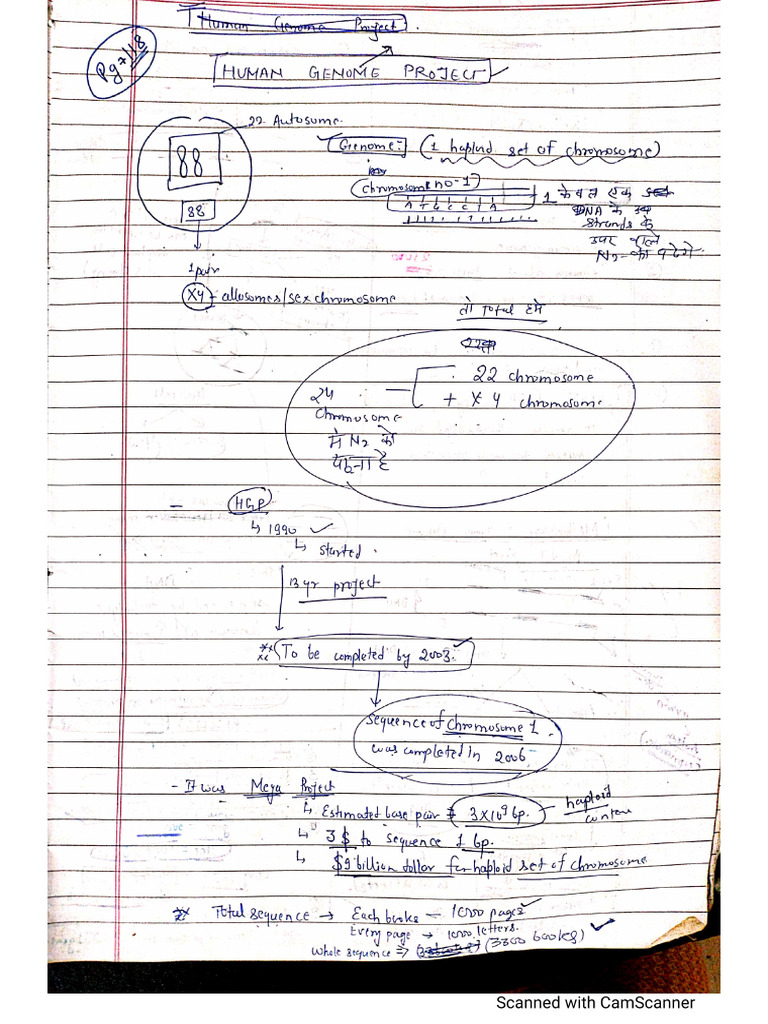 Human Genome Project.
Pg*118
HUMAN GENOME PROJECT
22 Autosome
88
Genome:- (1 haploid set of chromosome)
Chromosome no-1
1 केवल एक
DNA के एक
strands के
उपर वाले
N2-को पढेगे
A T G C C A
88
1 pair
XY - allosomes/sex chromosome
तो total हमे
22 chromosome
+ X Y chromosome
24
chromosome
मे N2 को
पढ़ना है
- HGP
↳ 1990 ✓
↳ started.
13 yr project
** ** To be completed by 2003.
sequence of chromosome 1
was completed in 2006
- It was Mega Project
↳ Estimated base pair = 3×10⁹ bp. - haploid content
↳ 3$ to sequence 1 bp.
↳ $9 billion dollar for haploid set of chromosome
** Total sequence → Each books - 1000 pages ✓
Every page → 1000 letters.
Whole sequence ⇒ (3300 books) ✓
Scanned with CamScanner